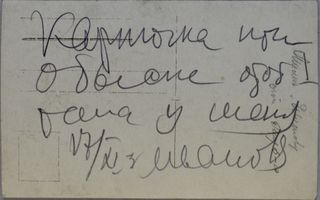 Карточка при
обыске отоб
рана у меня
17/XI Иванов